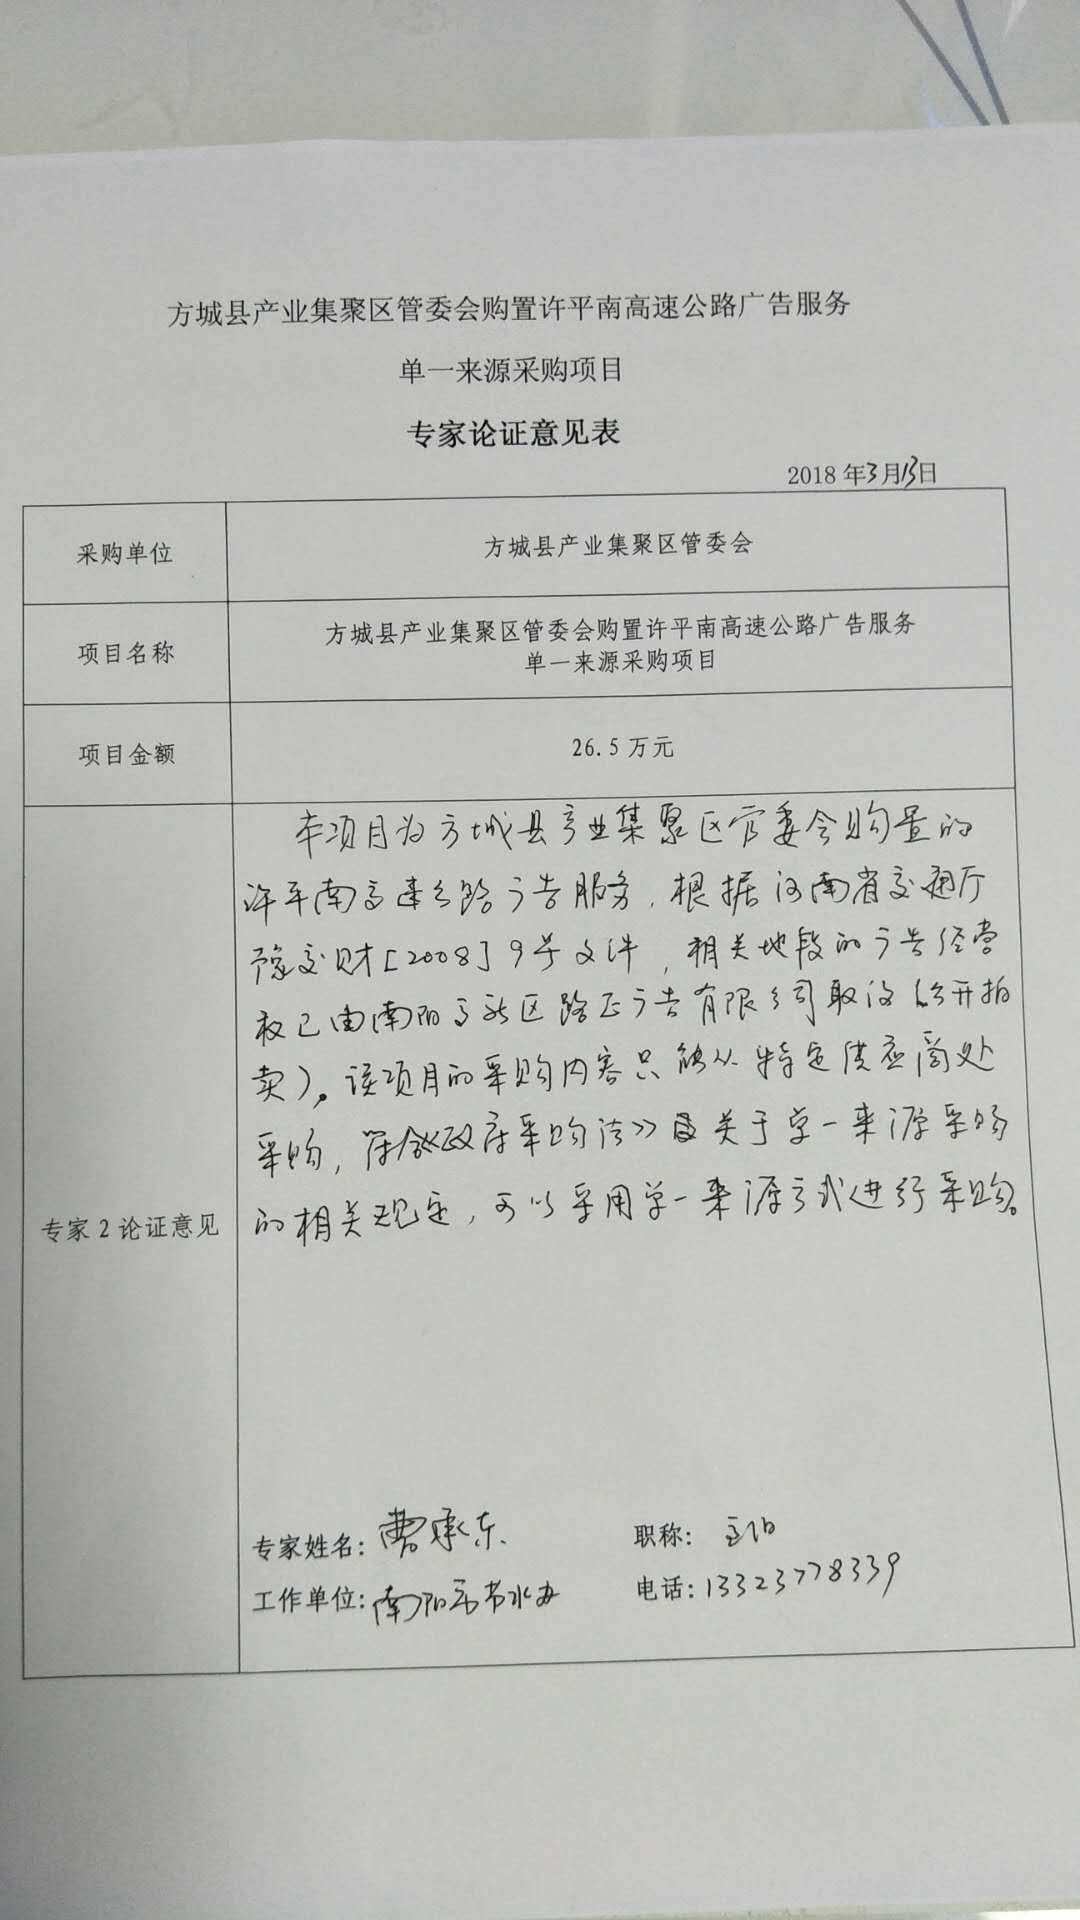 方城县产业集聚区管委会购置许平南高速公路广告服务
单一来源采购项目
专家论证意见表
2018年3月13日
采购单位
方城县产业集聚区管委会
项目名称
方城县产业集聚区管委会购置许平南高速公路广告服务
单一来源采购项目
项目金额
26.5万元
专家2论证意见
本项目为方城县产业集聚区管委会购置的
许平南高速公路广告服务，根据河南省交通厅
豫交财[2008]9号文件，相关地段的广告经营
权已由南阳高新区路正广告有限公司取得(公开拍
卖)。该项目的采购内容只能从特定供应商处
采购，符合《政府采购法》关于单一来源采购
的相关规定，可以采用单一来源方式进行采购。
专家姓名：曹承东
职称：
工作单位：南阳市节水办
电话：13323778339